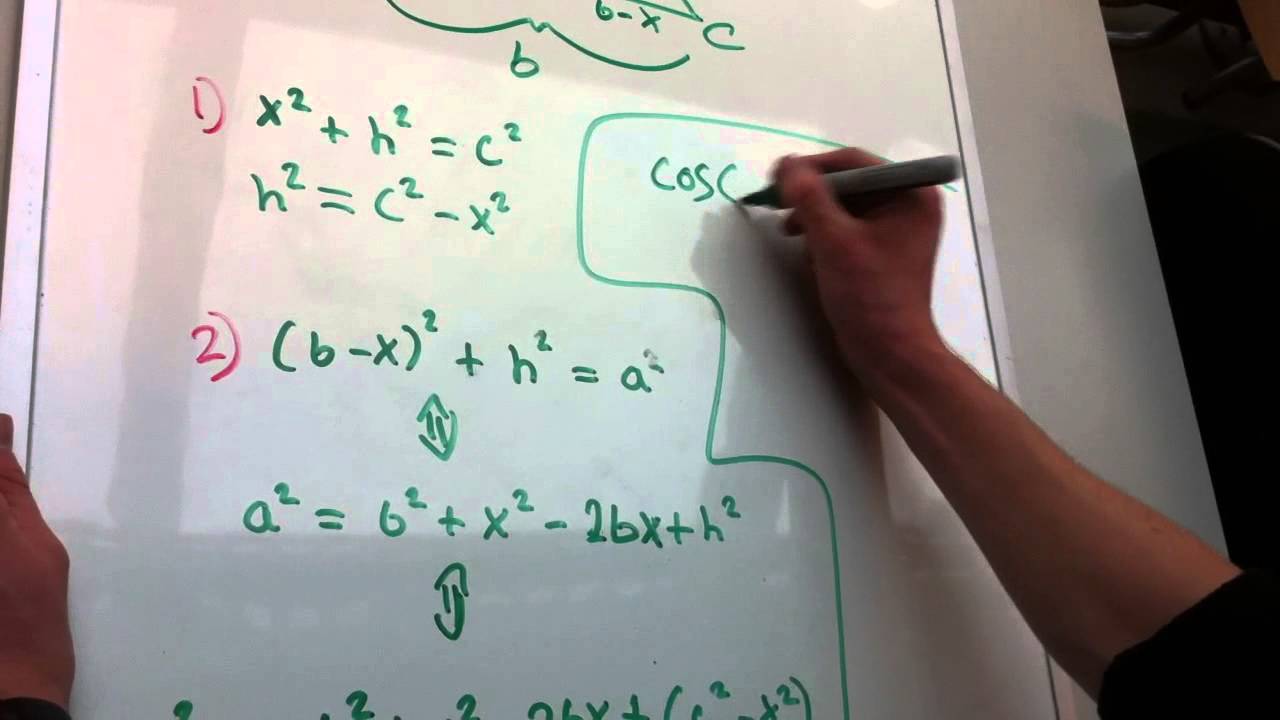 b-x
C
b
1) x² + h² = c²
h² = c² - x²
cos(
2) (b-x)² + h² = a²
⇕
a² = b² + x² - 2bx + h²
⇕
2bx + (c² - x²)